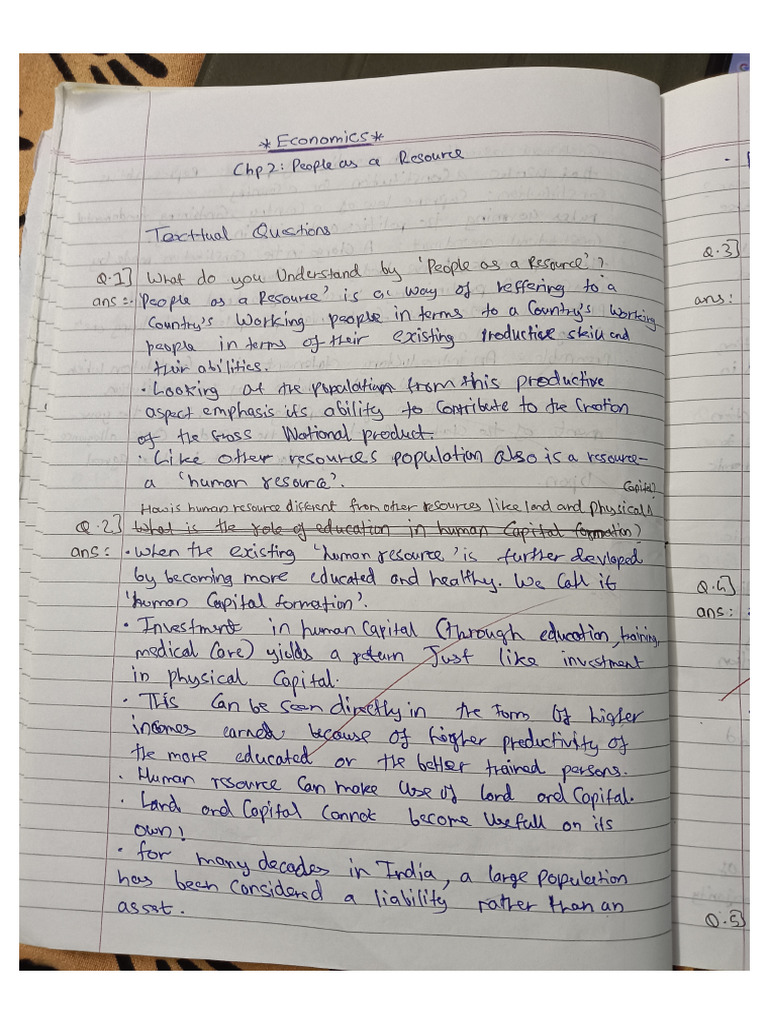 *Economics*
Chp 2: People as a Resource
Texttual Questions
Q.1] What do you Understand by 'People as a Resource'?
ans:- 'People as a Resource' is a way of reffering to a
Country's Working people in terms to a Country's Working
people in terms of their existing productive skill and
their abilities.
• Looking at the population from this productive
aspect emphasis its ability to Contribute to the Creation
of the Gross National product.
• Like other resources population also is a resource-
a 'human resource'.
Capital?
How is human resource different from other resources like land and physical ^
Q.2] What is the role of education in human Capital formation?
ans: • When the existing 'human resource' is further devloped
by becoming more educated and healthy. We Call it
'human Capital formation'.
• Investment in human Capital (through education, training,
medical Care) yields a return Just like investment
in physical Capital.
• This Can be seen directly in the form Of higher
incomes earned because of higher productivity of
the more educated or the better trained persons.
• Human resource Can make Use of Land and Capital.
• Land and Capital Cannot become Usefull on its
own!
• for many decades in India, a large population
has been Considered a liability rather than an
asset.
Q.3]
ans:
Q.4]
ans:
Q.5]